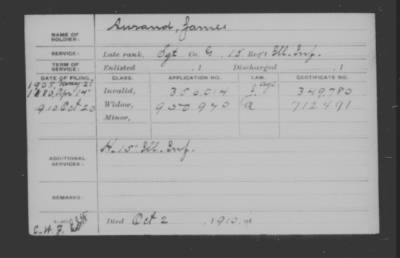 Aurand, James
NAME OF SOLDIER:
SERVICE: Late rank, Sgt Co. G, 15 Reg't Ill. Inf.
TERM OF SERVICE: Enlisted , 1 Discharged , 1
DATE OF FILING. CLASS. APPLICATION NO. LAW. CERTIFICATE NO.
1880, Apr 14 Invalid, 350,014 349,780
910 Oct 20 Widow, 950,940 a 712,491
Minor,
ADDITIONAL SERVICES: H. 15" Ill. Inf.
REMARKS:
Died Oct 2, 1910, at
C. H. F.